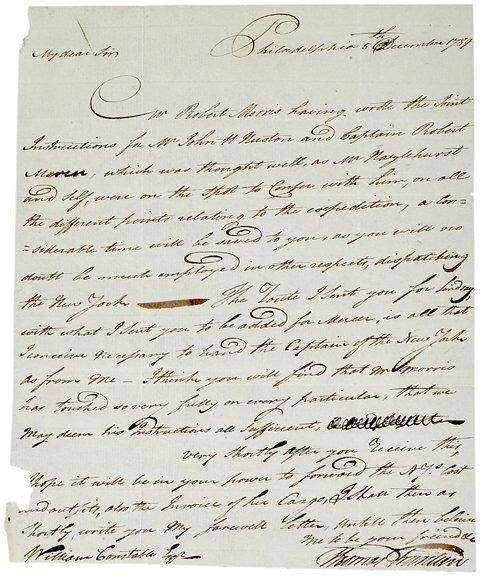 My dear Sir
Philadelphia 5th December 1789
Mr Robert Morris having wrote the Joint
Instructions for Mr John H Huston and Captain Robert
which was thought well, as Mr Hazlehurst
and self, were on the spot to Confer with him, on all
the different points relating to the expedition, a Con=
=siderable time will be saved to you, as you will no
doubt be much employed in other respects, dispatching
the New York The Route I sent you for Lindsay,
with what I sent you to be added for Mercer, is all that
I conceive necessary to hand the Captain of the New York
as from me — I think you will find that Mr Morris
has touched so very fully on every particular, that we
may deem his Instructions all sufficient,
very shortly after you receive this,
I hope it will be in your power to forward the N Ys Cost
and outfits, also the Invoice of her Cargo, I shall then as
shortly, write you My farewell Letter, Untill then believe
Me to be your friend &c
William Constable Esqr
Thomas